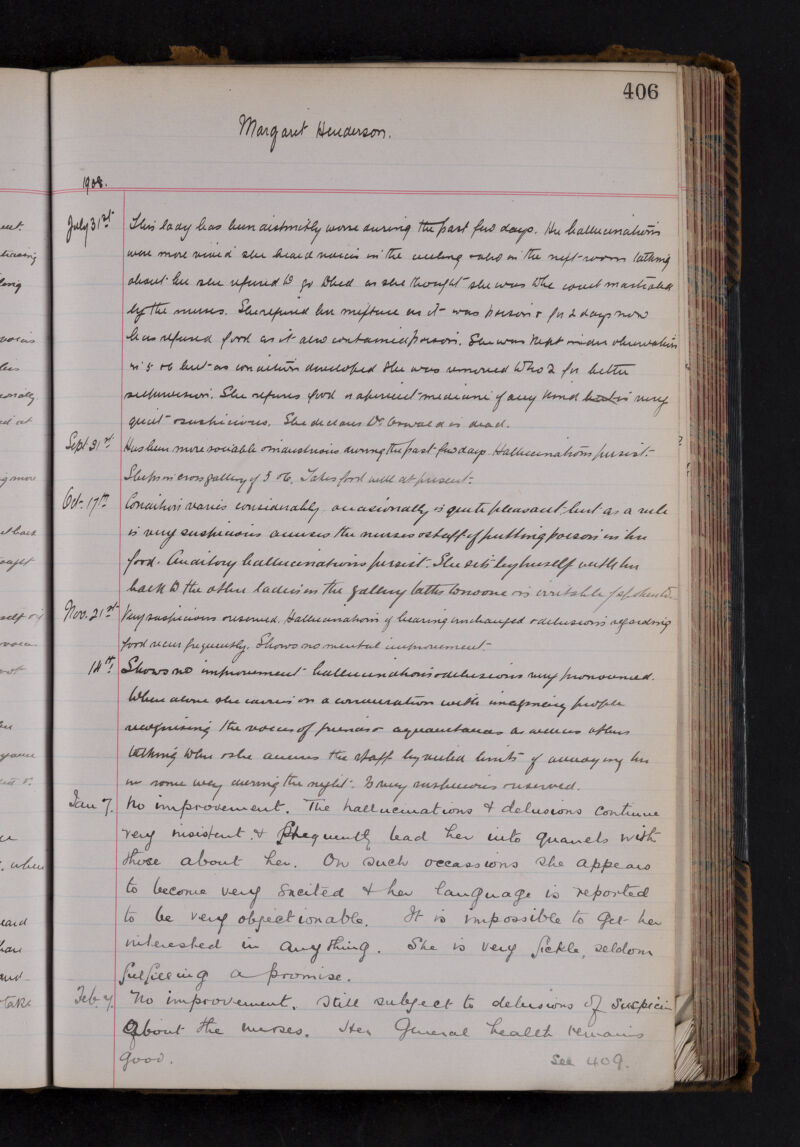 406
Margaret Henderson.
1908.
July 31st This lady has been distinctly worse during the past few days. Her hallucinations
were more vivid she heard voices in the ceiling & also in the next room talking
about her she refused to go to bed as she thought she was to be
by the nurses. She refused her mixture as it was poison & for 2 days now
has refused food as it also contained poison. She was kept under observation
in 5 & 6 but as condition developed she was removed to No 2 for better
supervision. She refuses food or aperient medicine of any kind is very
quiet & suspicious. She declares Dr Oswald is dead.
Sept 21st Has been more sociable & industrious during the past few days. Hallucinations persist.
Sleeps in cross gallery of 5 & 6. Takes food well at present.
Oct. 17th Condition varies considerably occasionally is quite pleasant but as a rule
is very suspicious accuses the nurses & staff of putting poison in her
food. Auditory hallucinations persist. She sits by herself with her
back to the other ladies in the gallery talks to no one & is irritable if spoken to
Nov. 21st Very suspicious & reserved. Hallucinations of hearing unchanged & delusions regarding
food recur frequently. Shows no mental improvement.
14th. Shows no improvement hallucinations & delusions very pronounced.
When alone she carries on a conversation with imaginary people
recognising the voices of friends or acquaintances as well as others
talking to her & she accuses the staff by veiled hints of annoying her
in some way during the night. Is very suspicious & reserved.
Jan 7. No improvement. The hallucinations & delusions continue
very insistent & frequently lead her into quarrels with
those about her. On such occassions she appears
to become very excited & her language is reported
to be very objectionable. It is impossible to get her
interested in anything. She is very fickle, seldom
fulfilling a promise.
Feb. 7. No improvement. Still subject to delusions of suspicion
about the nurses. Her General health remains
good. See 409.